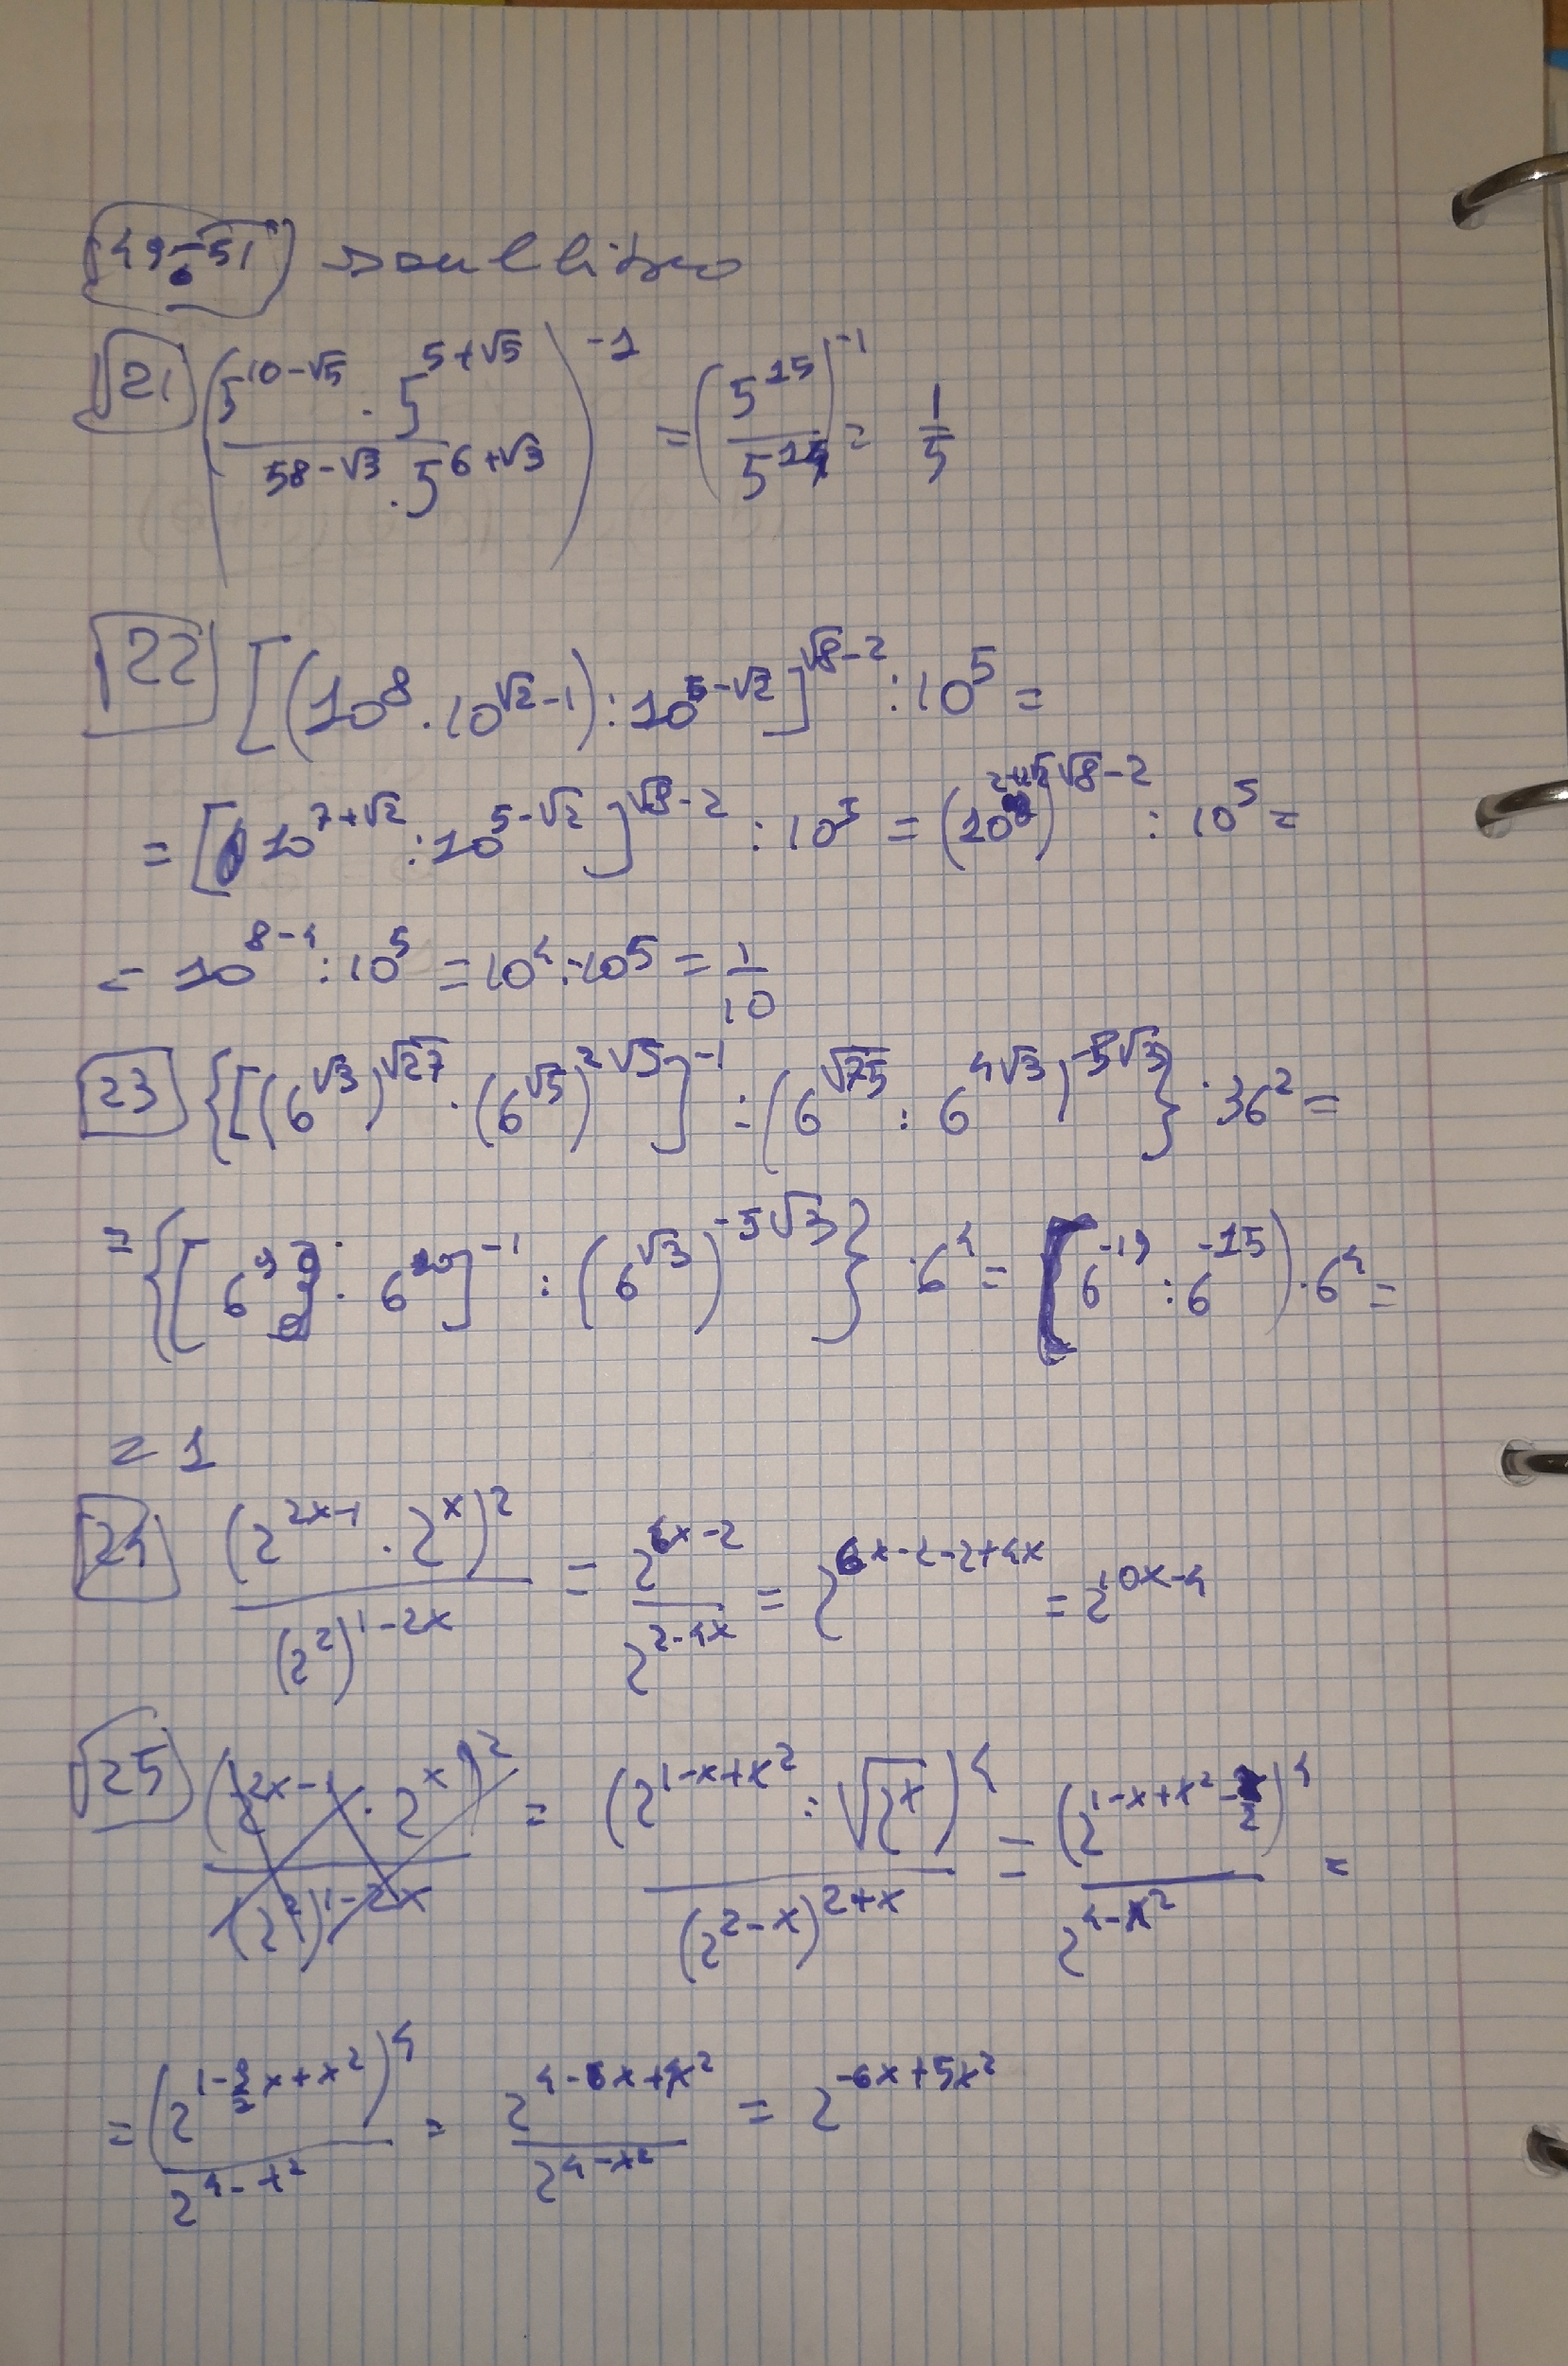 49-51 sul libro
21 (5^(10-√5) · 5^(5+√5) / 58-√3 · 5^(6+√3))^-1 = (5^15 / 5^14)^-1 = 1/5
22 [(10^8 · 10^(√2-1)) : 10^(5-√2)]^(√8-2) : 10^5 =
= [10^(7+√2) : 10^(5-√2)]^(√8-2) : 10^5 = (10^(2+2√2))^(√8-2) : 10^5 =
= 10^(8-4) : 10^5 = 10^4 : 10^5 = 1/10
23 {[(6^√3)^√27 · (6^√5)^(2√5)]^-1 : (6^√75 : 6^(4√3))^(-5√3)} · 36^2 =
= {[6^9 · 6^10]^-1 : (6^√3)^(-5√3)} · 6^4 = (6^-19 : 6^-15) · 6^4 =
= 1
24 (2^(2x-1) · 2^x)^2 / (2^2)^(1-2x) = 2^(6x-2) / 2^(2-4x) = 2^(6x-2-2+4x) = 2^(10x-4)
25 (2^(2x-1) · 2^x)^2 / (2^2)^(1-2x) = (2^(1-x+x^2) : √2^x)^4 / (2^(2-x))^(2+x) = (2^(1-x+x^2-x/2))^4 / 2^(4-x^2) =
= (2^(1-3/2x+x^2))^4 / 2^(4-x^2) = 2^(4-6x+4x^2) / 2^(4-x^2) = 2^(-6x+5x^2)